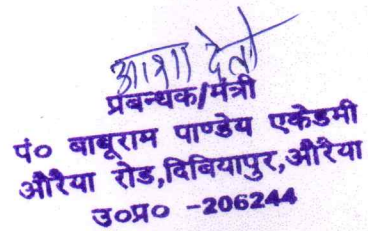 आशा देवी
प्रबन्धक/मंत्री
पं० बाबूराम पाण्डेय एकेडमी
औरैया रोड,दिबियापुर,औरैया
उ०प्र० -206244